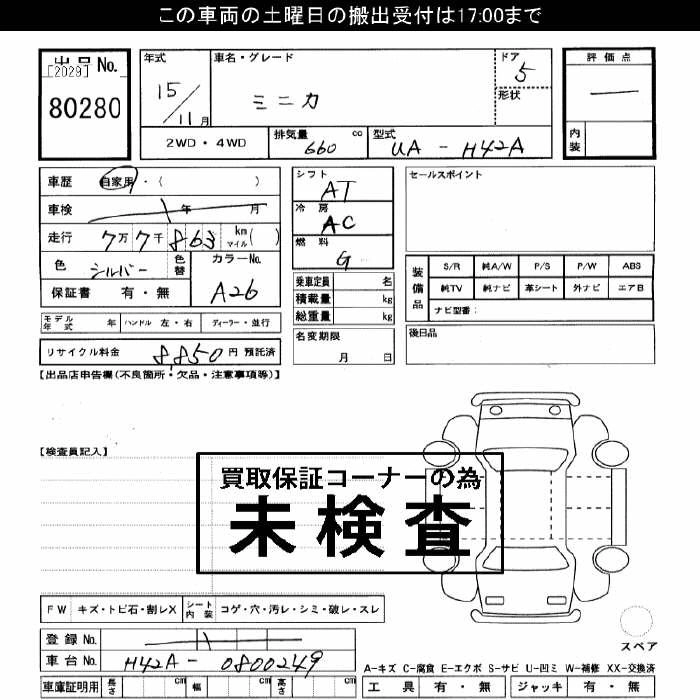 この車両の土曜日の搬出受付は17:00まで
出品 No.
[2029]
80280
年式
15/11月
車名・グレード
ミニカ
ドア
5
形状
評価点
―
内装
2WD・4WD
排気量 cc
660
型式
UA - H42A
車歴 自家用・( )
車検 年 月
走行 7万7千863 km マイル( )
色 シルバー 色替
カラーNo.
A26
保証書 有・無
シフト
AT
冷房
AC
燃料
G
乗車定員 名
積載量 kg
総重量 kg
名変期限
月 日
セールスポイント
装備品
S/R 純A/W P/S P/W ABS
純TV 純ナビ 革シート 外ナビ エアB
ナビ型番:
後日品
モデル年式 年 ハンドル 左・右 ディーラー・並行
リサイクル料金 8,850円 預託済
【出品店申告欄(不良箇所・欠品・注意事項等)】
【検査員記入】
買取保証コーナーの為
未検査
FW キズ・トビ石・割レX シート内装 コゲ・穴・汚レ・シミ・破レ・スレ
登録 No.
車台 No. H42A - 0800249
車庫証明用 長さ cm 幅 cm 高さ cm
スペア
A-キズ C-腐食 E-エクボ S-サビ U-凹ミ W-補修 XX-交換済
工具 有・無 ジャッキ 有・無